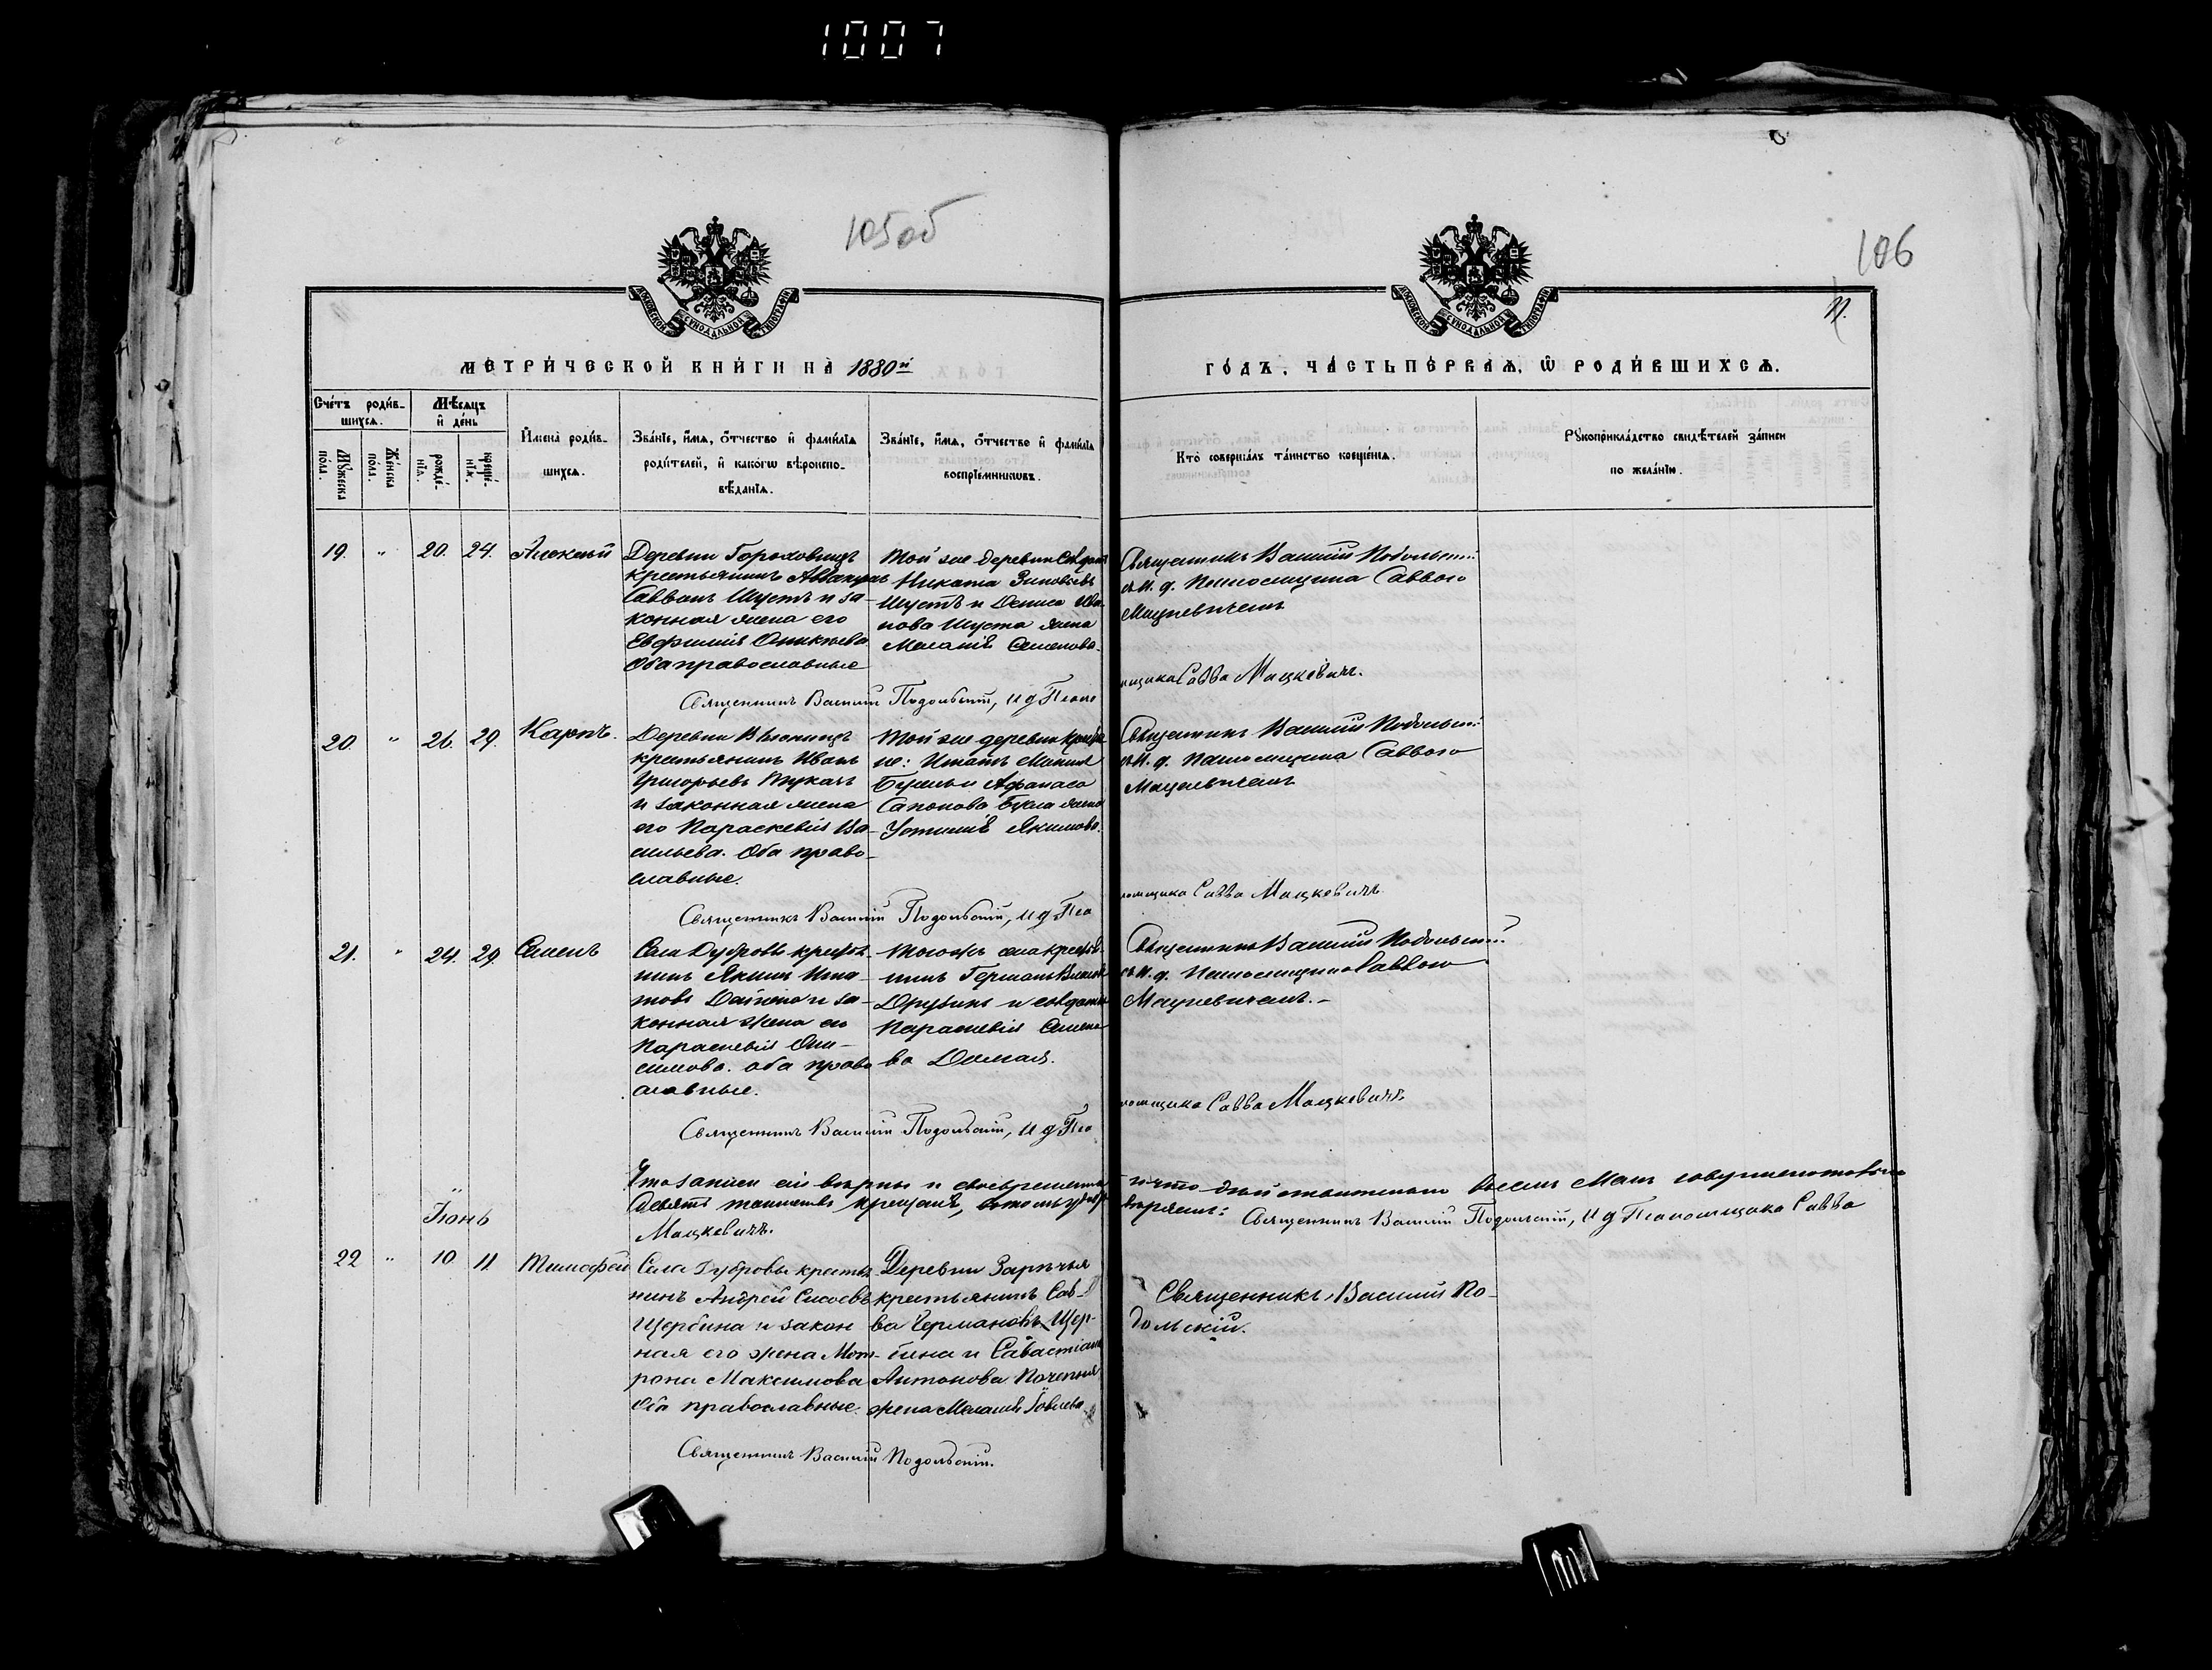 1007
105об
106
11.
МОСКОВСКОЙ СѴНОДАЛЬНОЙ ТИПОГРАФІИ
МОСКОВСКОЙ СѴНОДАЛЬНОЙ ТИПОГРАФІИ
МЕТРИ́ЧЕСКОЙ КНИ́ГИ НА 1880й
ГО́ДЪ, ЧА́СТЬ ПЕ́РВАѦ, Ѿ РОДИ́ВШИХСѦ.
Сче́тъ роди́в-
шихсѧ.
Мꙋ́жеска
по́ла.
Же́нска
по́ла.
Мѣ́сѧцъ
и҆ де́нь
рожде́-
нїѧ.
креще́-
нїѧ.
И҆мена̀ роди́в-
шихсѧ.
Зва́нїе, и҆́мѧ, ѻ҆́тчество и҆ фами́лїѧ
роди́телей, и҆ како́гѡ вѣроиспо-
вѣ́данїѧ.
Зва́нїе, и҆́мѧ, ѻ҆́тчество и҆ фами́лїѧ
воспрїе́мникѡвъ.
Кто̀ соверша́лъ та́инство креще́нїѧ.
Рꙋкоприкла́дство свидѣ́телей за́писи
по жела́нїю.
19. " 20. 24. Алексѣй
Деревни Гороховищъ
крестьянинъ
Савванъ Шустъ и за-
конная жена его
Евфимія
Оба православные
Той же деревни
Никита Зиновьевъ
Шустъ и Дениса Ива-
нова Шуста жена
Меланія Семенова.
Священникъ Василій Подольскій
съ И. д. Псаломщика Саввою
Мацкевичемъ
Священникъ Василій Подольскій, И д Псало
мщика Савва Мацкевичъ.
20. " 26. 29. Карпъ.
Деревни
крестьянинъ Иванъ
Григорьевъ Тукачъ
и законная жена
его Параскевія Ва-
сильева. Оба право-
славные.
Той же деревни
не: Игнатъ
и Афанаса
Сапонова Букла жена
Устинія Якимова.
Священникъ Василій Подольскій
съ И. д. Псаломщика Саввою
Мацкевичемъ
Священникъ Василій Подольскій, И д Пса
ломщика Савва Мацкевичъ.
21. " 24. 29. Семенъ
Села Дубровы крестья-
нинъ Якимъ Игна-
товъ и за-
конная жена его
Параскевія Они-
симова. Оба право
славные.
Тогожъ села крестья-
нинъ Германъ
и солдатка
Параскевія Семено-
ва
Священникъ Василій Подольскій
съ И. д. Псаломщика Саввою
Мацкевичемъ.-
Священникъ Василій Подольскій, И д Пса
ломщика Савва Мацкевичъ
Что записи сіи вѣрны и своевременны и что дѣйствительно всѣхъ Мая совершенно
девять таинствъ крещенія, въ томъ удостовѣряемъ: Священникъ Василій Подольскій, И д Псаломщика Савва
Мацкевичъ.
Іюнь
22 " 10 11 Тимофей
Села Дубровы крестья-
нинъ Андрей Сисоевъ
Щербина и закон
ная его жена Мот-
рона Максимова
Оба православные.
Деревни Зарѣчья
крестьянинъ Сав-
ва Германовъ Щер-
бина и Савастіана
Антонова
жена Меланія Іовлева
Священникъ Василій По-
дольскій.
Священникъ Василій Подольскій.